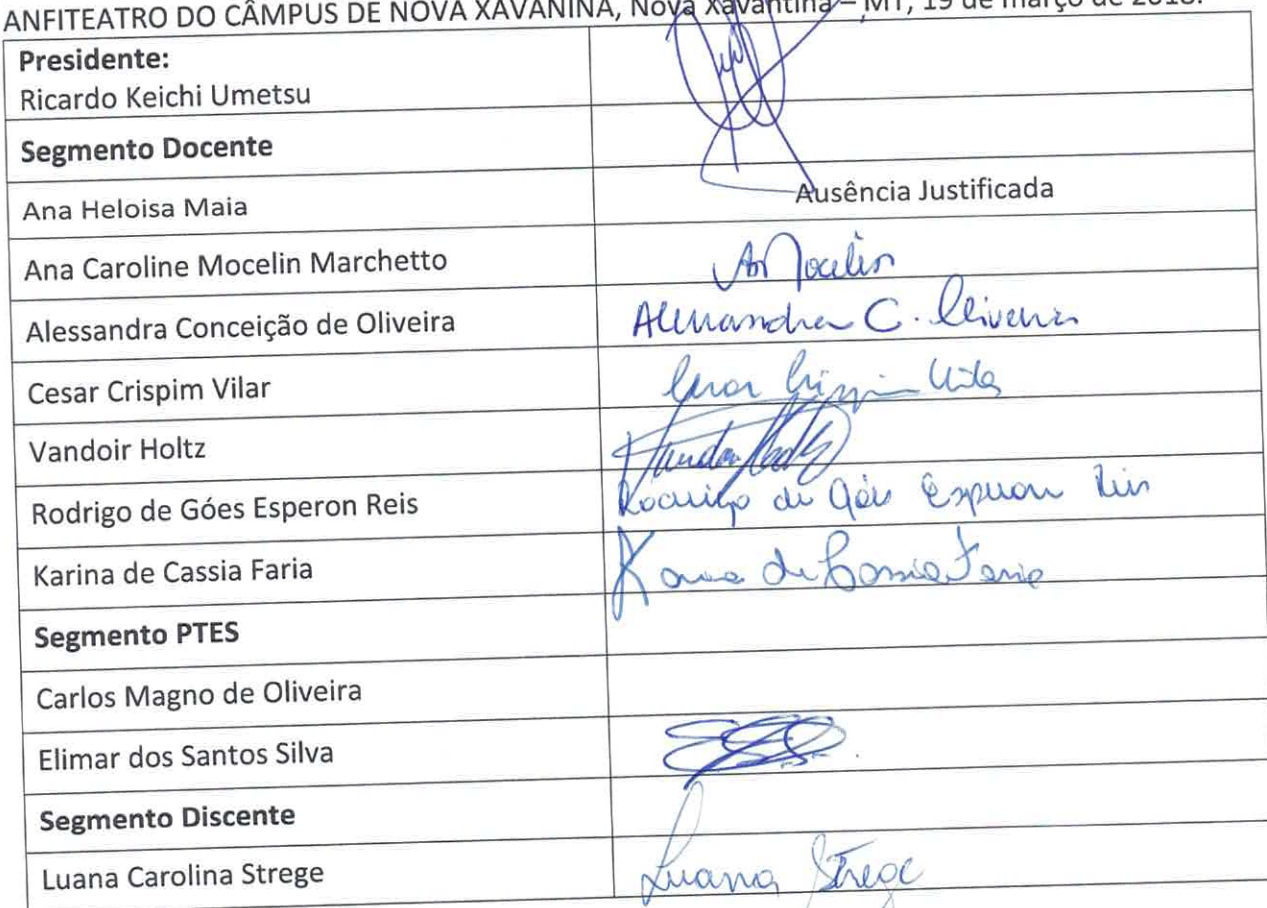 ANFITEATRO DO CÂMPUS DE NOVA XAVANINA, Nova Xavantina – MT, 19 de março de 2018.
Presidente:
Ricardo Keichi Umetsu
Segmento Docente
Ana Heloisa Maia Ausência Justificada
Ana Caroline Mocelin Marchetto Mocelin
Alessandra Conceição de Oliveira Alessandra C. Oliveira
Cesar Crispim Vilar Cesar Crispim Vilar
Vandoir Holtz
Rodrigo de Góes Esperon Reis Rodrigo de Góes Esperon Reis
Karina de Cassia Faria Karina de Cassia Faria
Segmento PTES
Carlos Magno de Oliveira
Elimar dos Santos Silva
Segmento Discente
Luana Carolina Strege Luana Strege